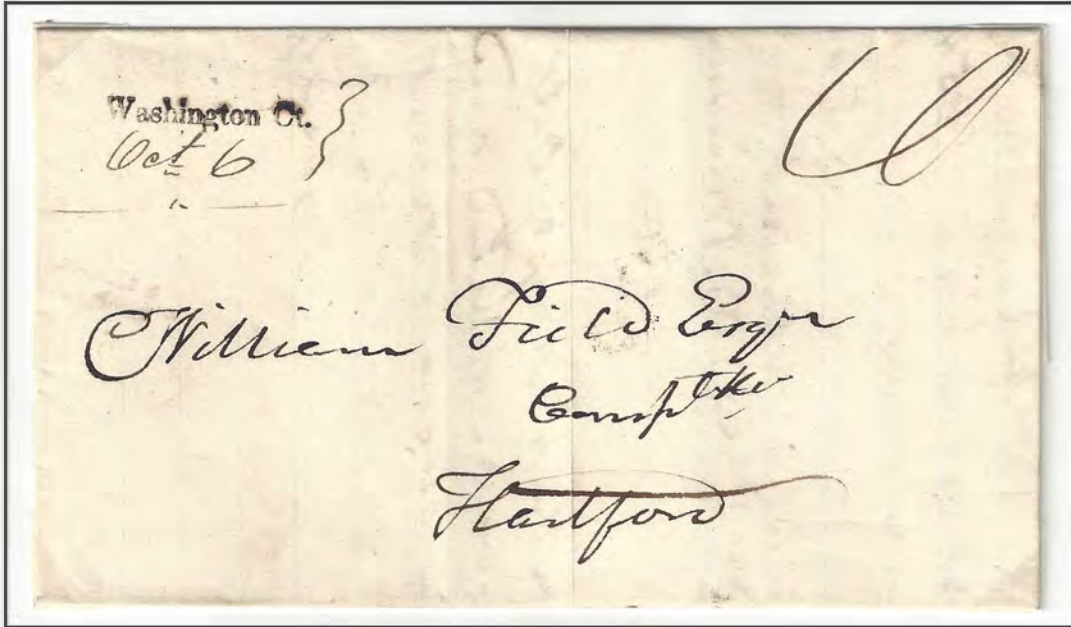 Washington Ct.
Oct 6
6
William Field Esqr
Compt
Hartford